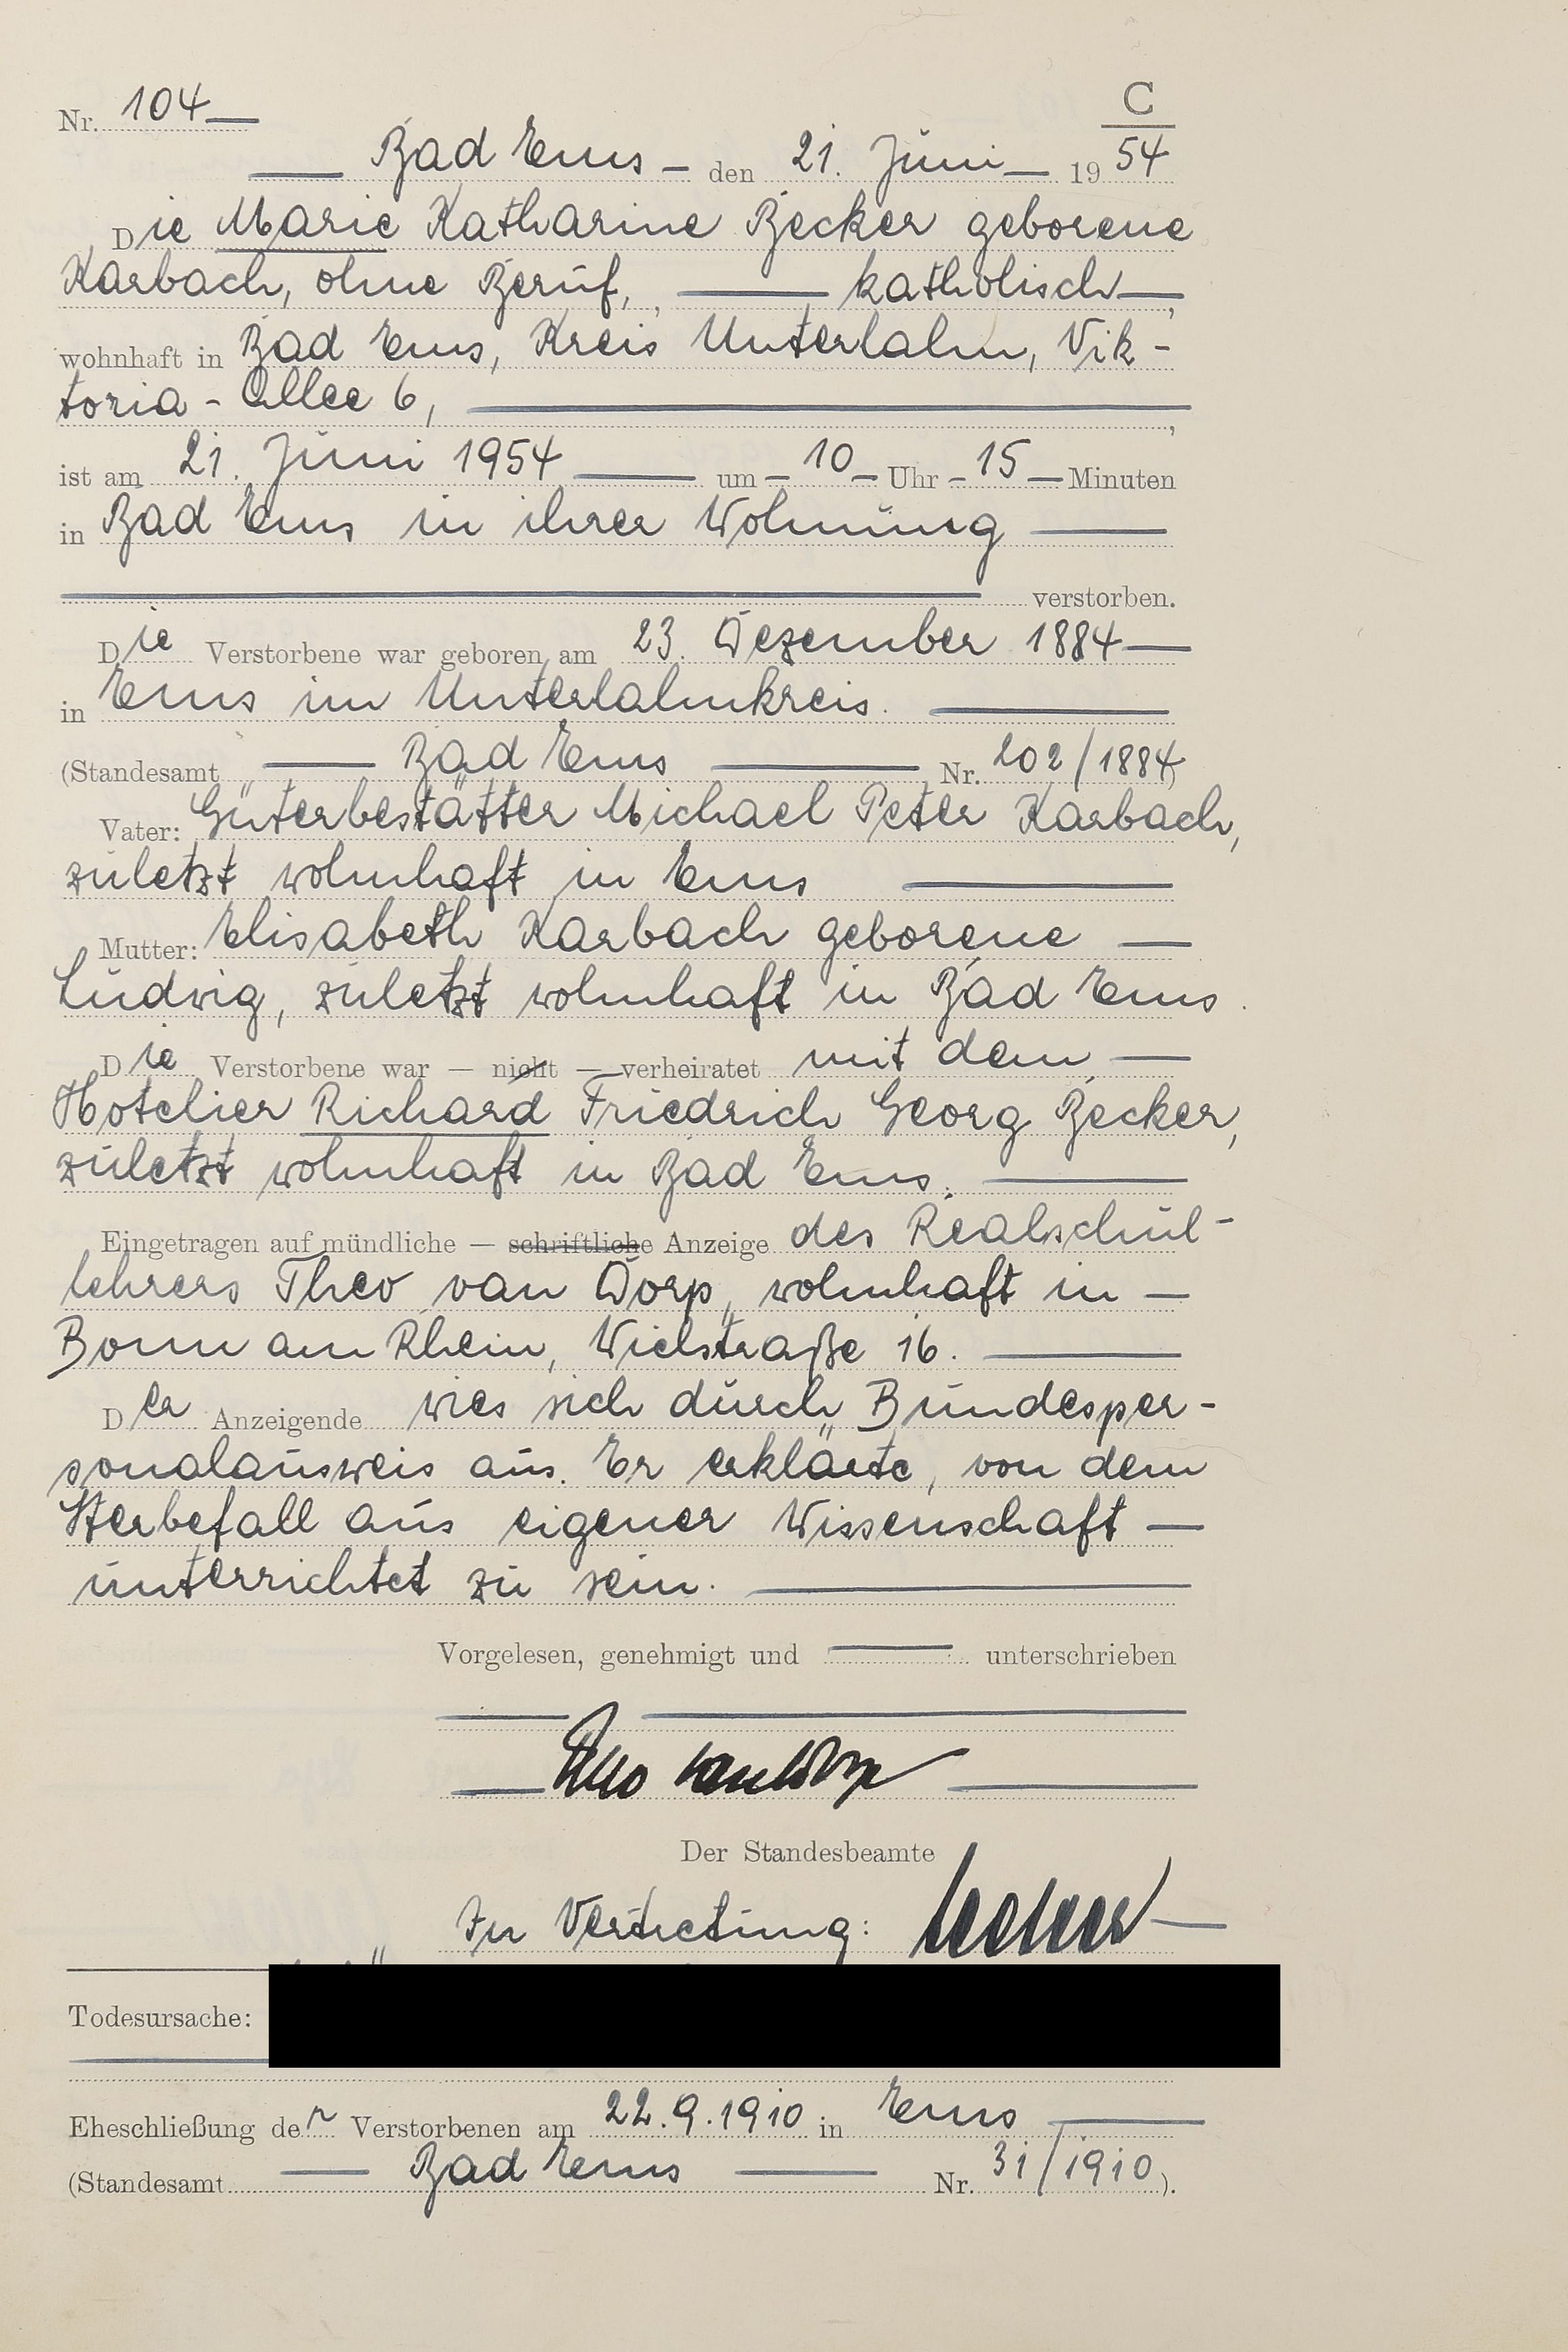 C
Nr. 104
Bad Ems - den 21. Juni 19 54
Die Marie Katharine Becker geborene
Karbach, ohne Beruf, katholisch,
wohnhaft in Bad Ems, Kreis Unterlahn, Vik-
toria-Allee 6,
ist am 21. Juni 1954 um 10 Uhr 15 Minuten
in Bad Ems in ihrer Wohnung
verstorben.
Die Verstorbene war geboren am 23. Dezember 1884
in Ems im Unterlahnkreis.
(Standesamt Bad Ems Nr. 202/1884)
Vater: Güterbestätter Michael Peter Karbach,
zuletzt wohnhaft in Ems
Mutter: Elisabeth Karbach geborene
Ludwig, zuletzt wohnhaft in Bad Ems.
Die Verstorbene war — nicht — verheiratet mit dem
Hotelier Richard Friedrich Georg Becker,
zuletzt wohnhaft in Bad Ems.
Eingetragen auf mündliche — schriftliche Anzeige des Realschul-
lehrers Theo van Dorp, wohnhaft in
Bonn am Rhein, Wielstraße 16.
Der Anzeigende wies sich durch Bundesper-
sonalausweis aus. Er erklärte, von dem
Sterbefall aus eigener Wissenschaft
unterrichtet zu sein.
Vorgelesen, genehmigt und unterschrieben
Theo van Dorp
Der Standesbeamte
In Vertretung:
Todesursache:
Eheschließung der Verstorbenen am 22.9.1910 in Ems
(Standesamt Bad Ems Nr. 31/1910).